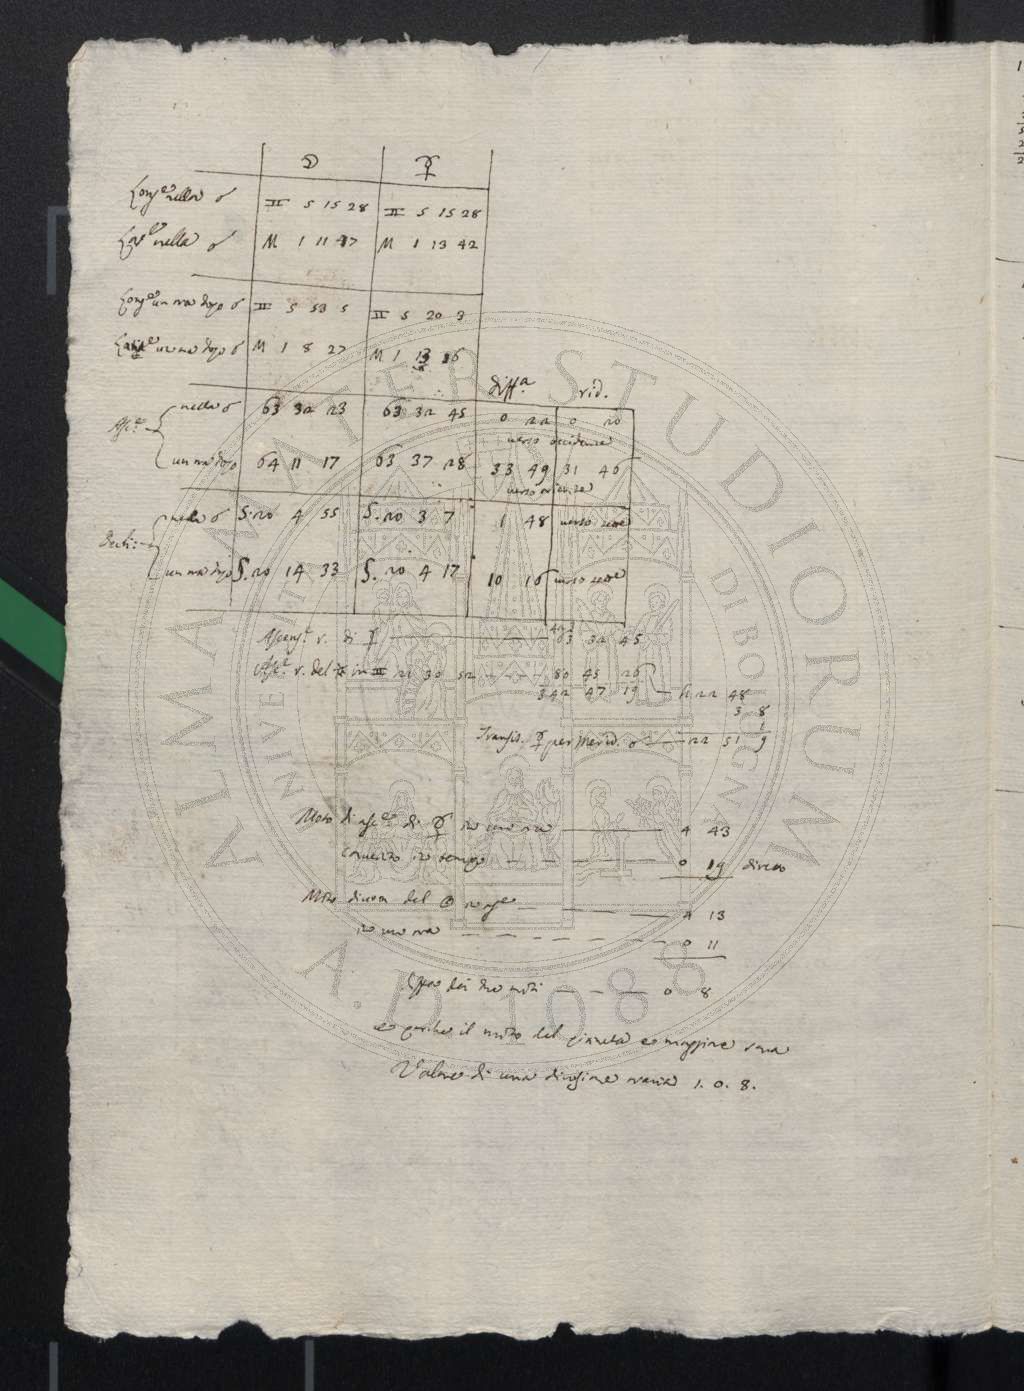 ☽ ☿
Long.e nella ☌ ♊ 5 15 28 ♊ 5 15 28
Lat.e nella ☌ M 1 11 47 M 1 13 42
Long.e un ora dopo ☌ ♊ 5 53 5 ♊ 5 20 3
Lat.e un ora dopo ☌ M 1 8 27 M 1 13 26
diff.a rid.
Asc.e nella ☌ 63 32 23 63 32 45 0 22 0 20
verso occidente
un ora dopo 64 11 17 63 37 28 33 49 31 46
verso oriente
Decli: nella ☌ S. 20 4 55 S. 20 3 7 1 48 verso sett.e
un ora dopo S. 20 14 33 S. 20 4 17 10 16 verso sett.e
Ascens.e r. di ☿ 423
63 32 45
Asc.e r. del in ♊ 21 30 52 80 45 26
342 47 19 h 22 48
3 8
1
Transit. ☿ per Merid. 22 51 9
Moto di asc.e di ☿ in un ora 4 43
convertito in tempo 0 19 diretto
Moto diurno del ☉ in asc.e 4 13
in un ora 0 11
Differ.a dei due moti 0 8
e perche il moto del pianeta e maggiore sara
Valore di una divisione oraria 1. 0. 8.
ALMA MATER STUDIORUM
UNIVERSITÀ DI BOLOGNA
A.D. 1088